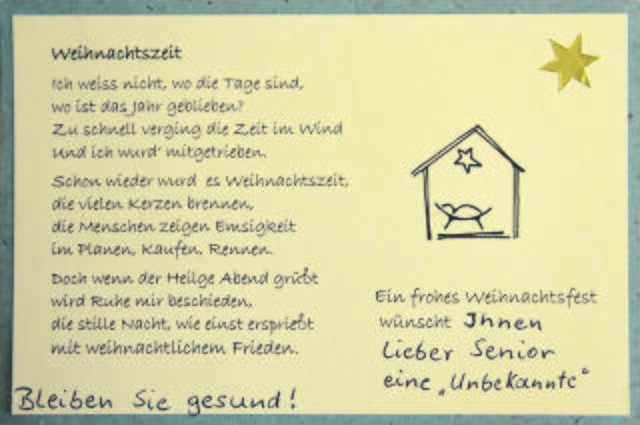 Weihnachtszeit
Ich weiss nicht, wo die Tage sind,
wo ist das Jahr geblieben?
Zu schnell verging die Zeit im Wind
und ich wurd' mitgetrieben.
Schon wieder wurd es Weihnachtszeit,
die vielen Kerzen brennen,
die Menschen zeigen Emsigkeit
im Planen, Kaufen, Rennen.
Doch wenn der Heilge Abend grüßt
wird Ruhe mir beschieden,
die stille Nacht, wie einst ersprießt
mit weihnachtlichem Frieden.
Ein frohes Weihnachtsfest
wünscht Ihnen
Lieber Senior
eine „Unbekannte"
Bleiben Sie gesund!